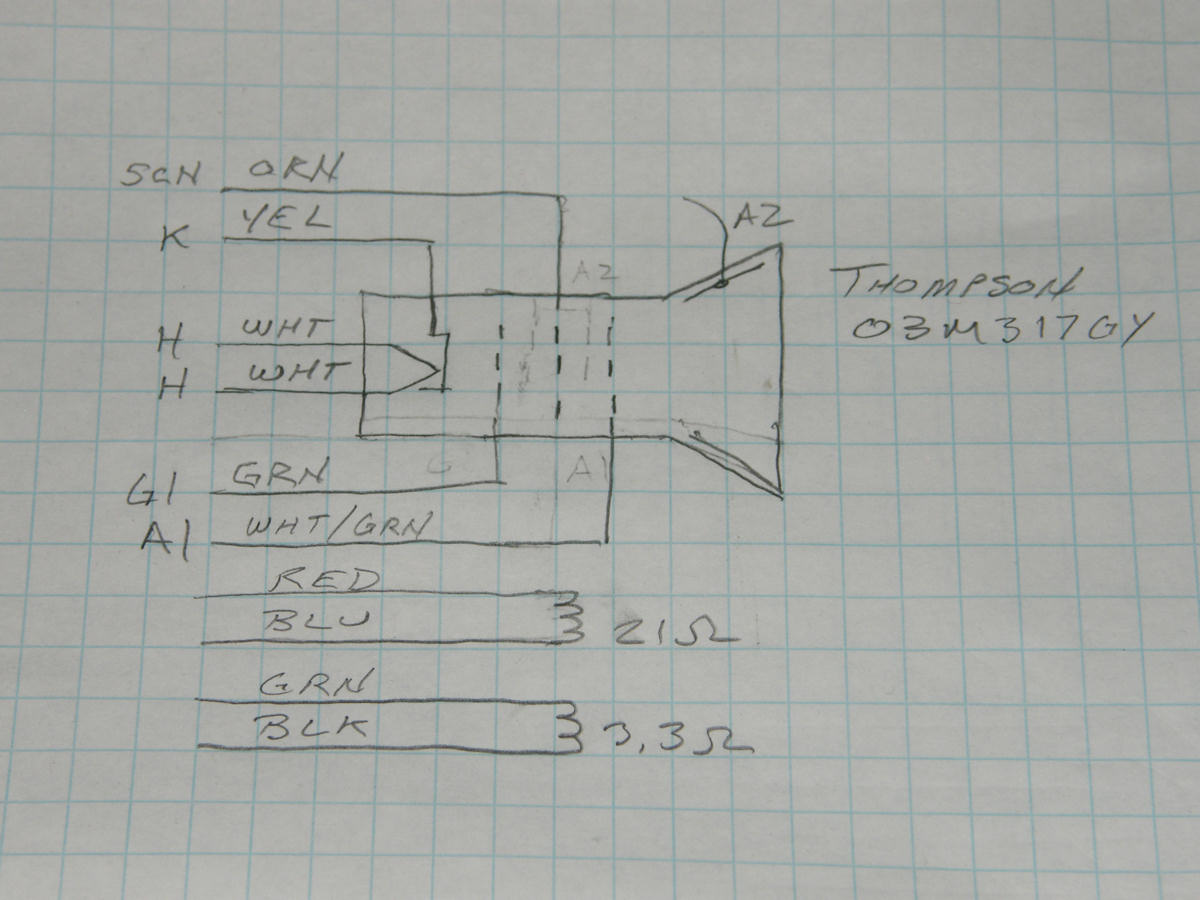 SCN ORN
K YEL
A2
A2
THOMPSON
03M317GY
H WHT
H WHT
G1 GRN
G A1
A1 WHT/GRN
RED
BLU 21Ω
GRN
BLK 3,3Ω